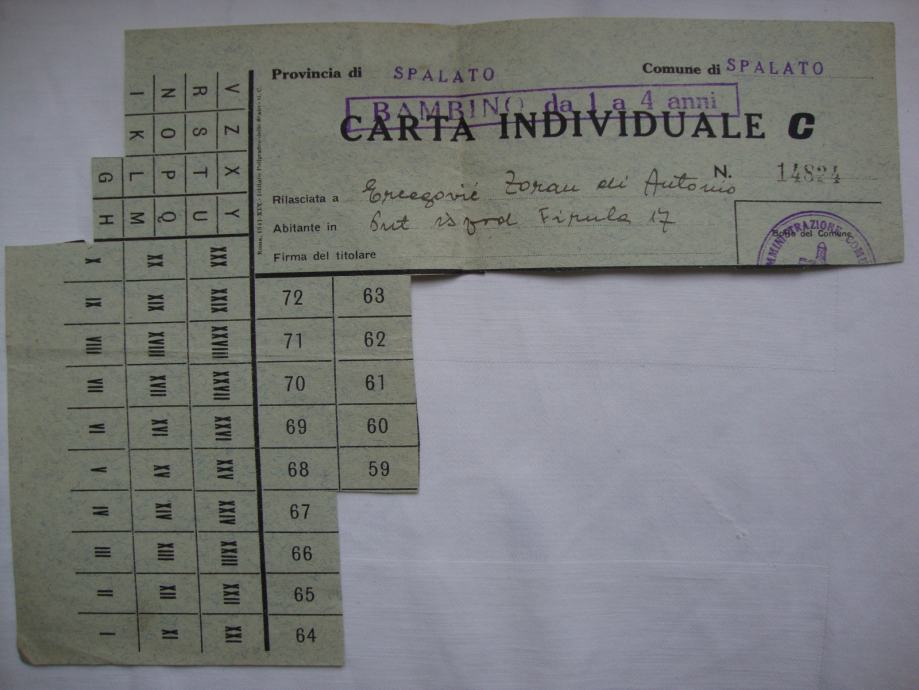 Provincia di SPALATO Comune di SPALATO
BAMBINO da 1 a 4 anni
CARTA INDIVIDUALE C
N. 14824
Rilasciata a Ercegović Zoran di Antonio
Abitante in Put Firula 17
Bollo del Comune
Firma del titolare
MMINISTRAZIONE COMU
V Z X Y
R S T U
N O P Q
I K L M
G H
XXX XXIX XXVIII XXVII XXVI XXV XXIV XXIII XXII XXI
XX XIX XVIII XVII XVI XV XIV XIII XII XI
X IX VIII VII VI V IV III II I
72 63
71 62
70 61
69 60
68 59
67
66
65
64